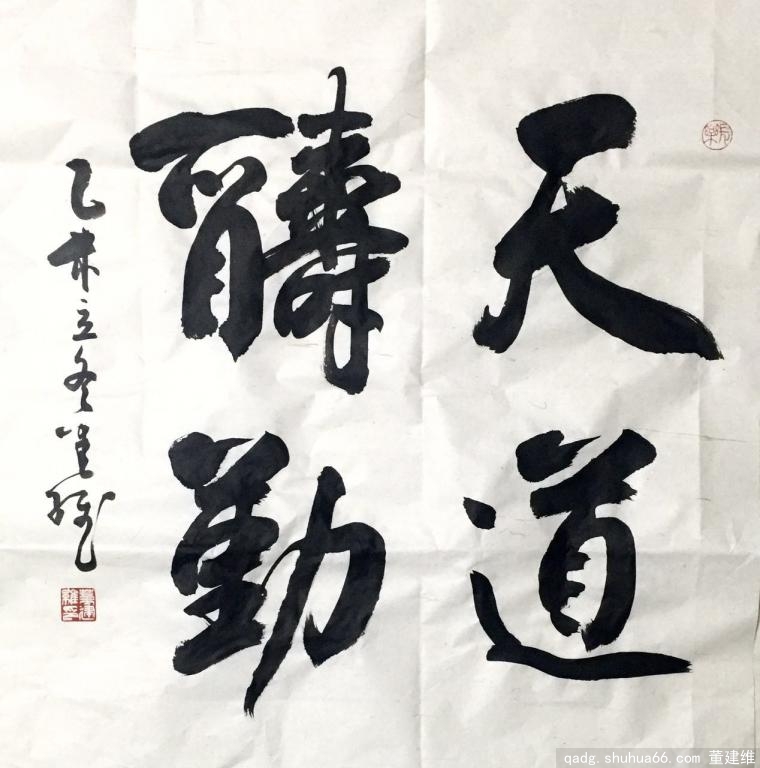 天道
醻勤
乙未立冬
董建
維印
qadg.shuhua66.com 董建维